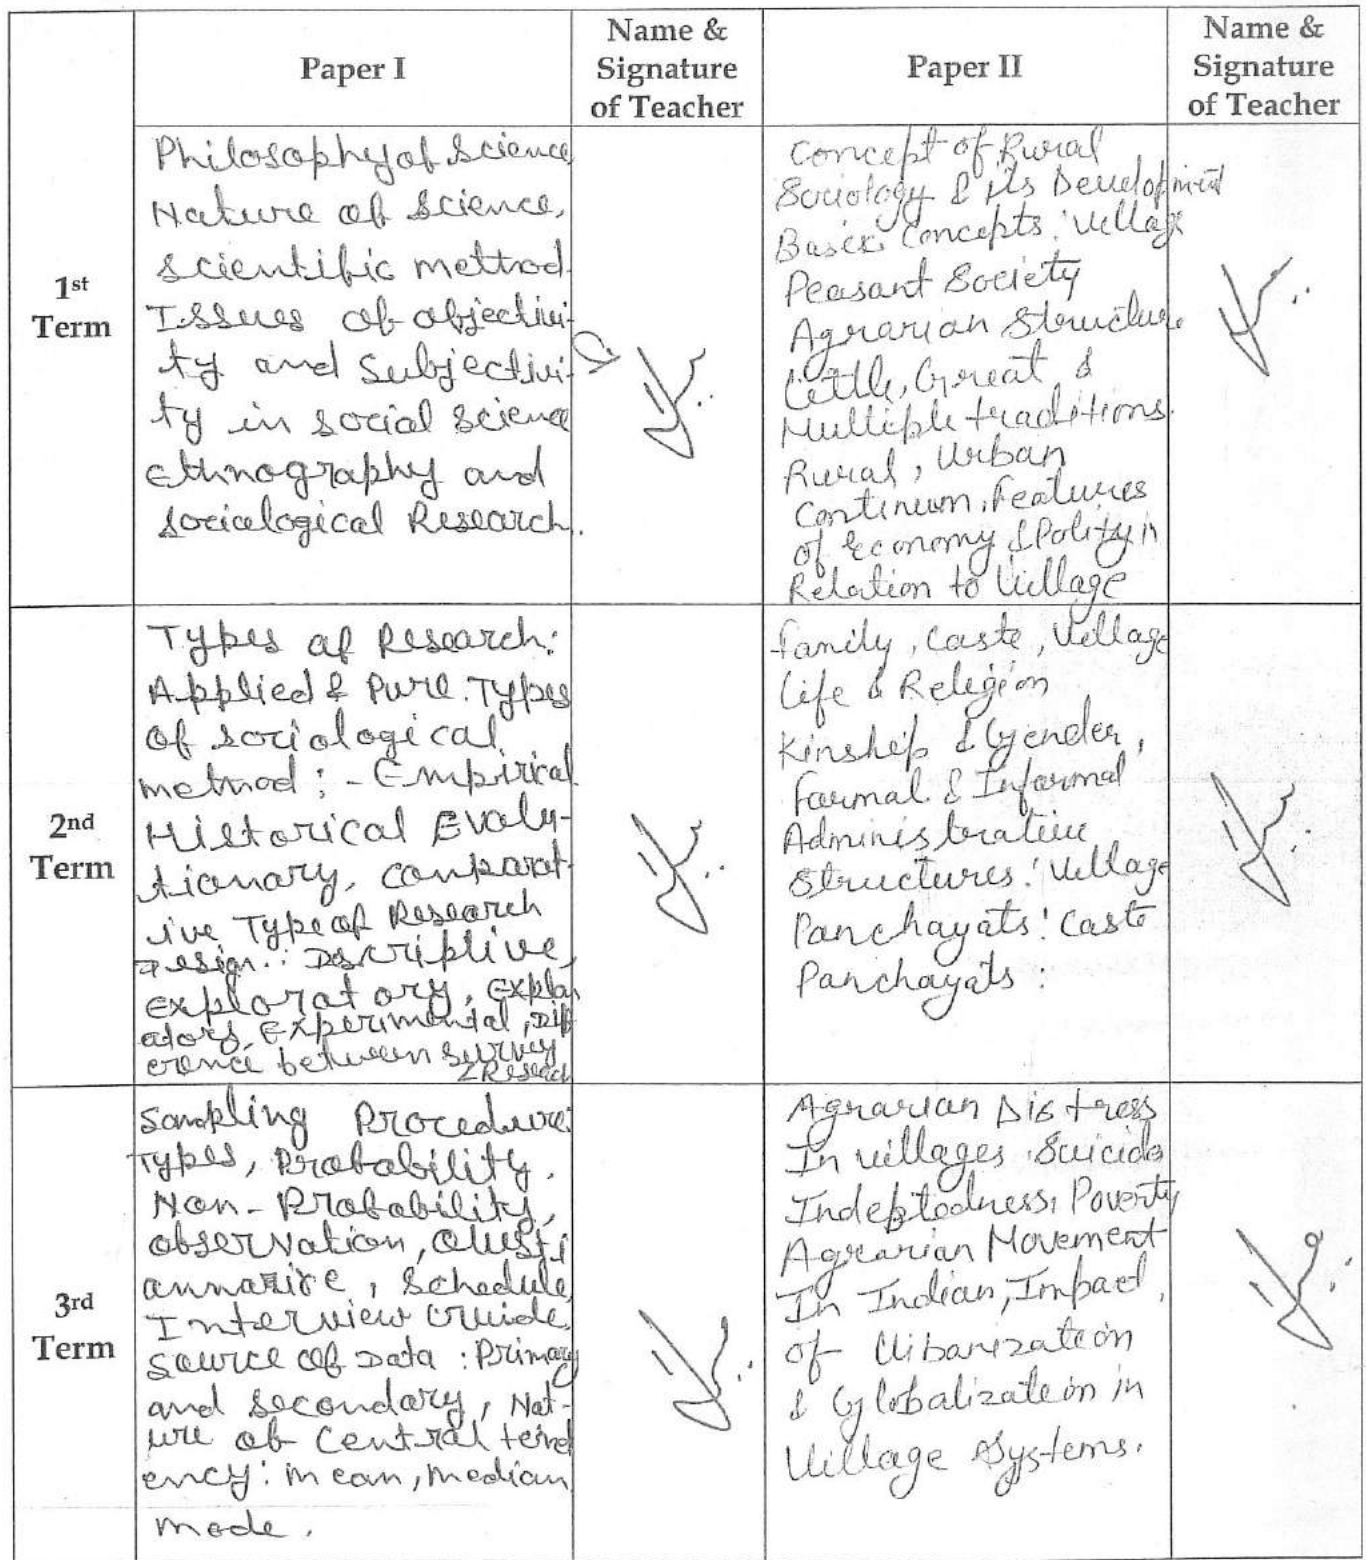 Paper I
Name &
Signature
of Teacher
Paper II
Name &
Signature
of Teacher
1st
Term
Philosophy of Science
Nature of Science,
Scientific method
Issues of objectivi-
ty and Subjectivi-
ty in social science
Ethnography and
Sociological Research.
Concept of Rural
Sociology & its Development
Basic Concepts: Village
Peasant Society
Agrarian Structure
Little, Great &
Multiple traditions.
Rural, Urban
Continum, Features
of Economy & Polity in
Relation to Village
2nd
Term
Types of Research:
Applied & Pure. Types
of sociological
method : - Empirical
Historical Evolu-
tionary, comparat-
ive Type of Research
Design : Descriptive,
Exploratory, Expla
atory, Experimental, Diff
erence between survey
& Reseach
Family, Caste, Village
Life & Religion
Kinship & Gender,
Formal & Informal
Administrative
Structures: Village
Panchayats: Caste
Panchayats:
3rd
Term
Sampling Procedure:
Types, Probability,
Non-Probability,
observation, Questi
annarire, Schedule,
Interview Guide,
Source of Data : Primary
and secondary, Nat-
ure of Central tend
ency: mean, median
mode.
Agrarian Distress
In villages. Suicide
Indeptedness, Poverty
Agrarian Movement
In Indian, Impact,
of Urbanization
& Globalization in
Village Systems.